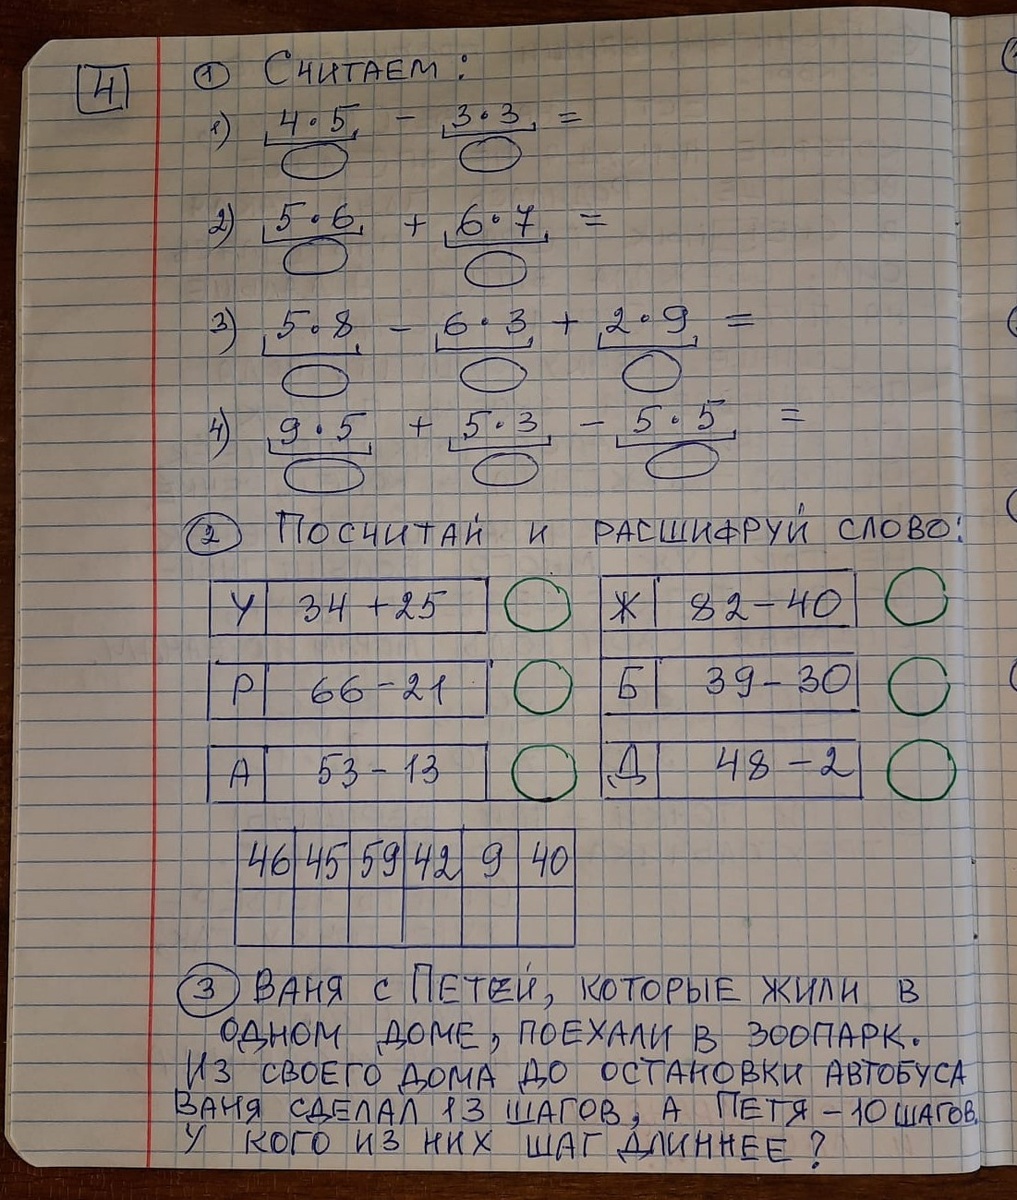 4
① Считаем:
1) 4·5 - 3·3 =
2) 5·6 + 6·7 =
3) 5·8 - 6·3 + 2·9 =
4) 9·5 + 5·3 - 5·5 =
② Посчитай и расшифруй слово:
У 34+25 Ж 82-40
Р 66-21 Б 39-30
А 53-13 Д 48-2
46 45 59 42 9 40
③ Ваня с Петей, которые жили в
одном доме, поехали в зоопарк.
Из своего дома до остановки автобуса
Ваня сделал 13 шагов, а Петя - 10 шагов.
У кого из них шаг длиннее?